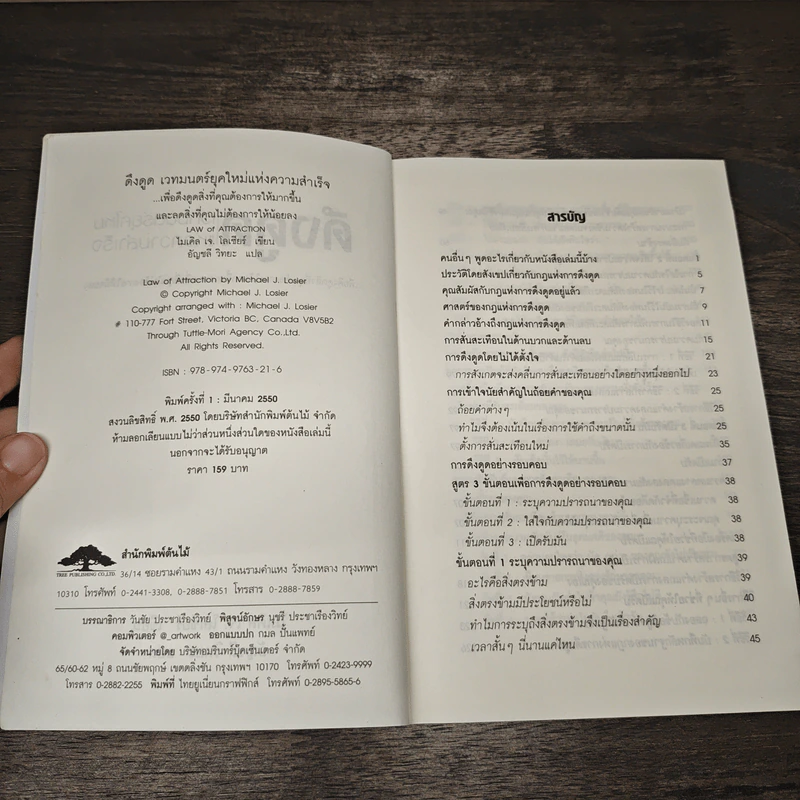 ดึงดูด เวทมนตร์ยุคใหม่แห่งความสำเร็จ
...เพื่อดึงดูดสิ่งที่คุณต้องการให้มากขึ้น
และลดสิ่งที่คุณไม่ต้องการให้น้อยลง
LAW of ATTRACTION
ไมเคิล เจ. โลเซียร์ เขียน
อัญชลี วิทยะ แปล
Law of Attraction by Michael J. Losier
© Copyright Michael J. Losier
Copyright arranged with : Michael J. Losier
# 110-777 Fort Street, Victoria BC, Canada V8V5B2
Through Tuttle-Mori Agency Co.,Ltd.
All Rights Reserved.
ISBN : 978-974-9763-21-6
พิมพ์ครั้งที่ 1 : มีนาคม 2550
สงวนลิขสิทธิ์ พ.ศ. 2550 โดยบริษัทสำนักพิมพ์ต้นไม้ จำกัด
ห้ามลอกเลียนแบบไม่ว่าส่วนหนึ่งส่วนใดของหนังสือเล่มนี้
นอกจากจะได้รับอนุญาต
ราคา 159 บาท
สำนักพิมพ์ต้นไม้
TREE PUBLISHING CO.,LTD.
36/14 ซอยรามคำแหง 43/1 ถนนรามคำแหง วังทองหลาง กรุงเทพฯ
10310 โทรศัพท์ 0-2441-3308, 0-2888-7851 โทรสาร 0-2888-7859
บรรณาธิการ วันชัย ประชาเรืองวิทย์ พิสูจน์อักษร นุชรี ประชาเรืองวิทย์
คอมพิวเตอร์ @_artwork ออกแบบปก กมล ปิ้นแพทย์
จัดจำหน่ายโดย บริษัทอมรินทร์บุ๊คเซ็นเตอร์ จำกัด
65/60-62 หมู่ 8 ถนนชัยพฤกษ์ เขตตลิ่งชัน กรุงเทพฯ 10170 โทรศัพท์ 0-2423-9999
โทรสาร 0-2882-2255 พิมพ์ที่ ไทยยูเนี่ยนกราฟฟิกส์ โทรศัพท์ 0-2895-5865-6
สารบัญ
คนอื่นๆ พูดอะไรเกี่ยวกับหนังสือเล่มนี้บ้าง 1
ประวัติโดยสังเขปเกี่ยวกับกฎแห่งการดึงดูด 5
คุณสัมผัสกับกฎแห่งการดึงดูดอยู่แล้ว 7
ศาสตร์ของกฎแห่งการดึงดูด 9
คำกล่าวอ้างถึงกฎแห่งการดึงดูด 11
การสั่นสะเทือนในด้านบวกและด้านลบ 15
การดึงดูดโดยไม่ได้ตั้งใจ 21
การสังเกตจะส่งคลื่นการสั่นสะเทือนอย่างใดอย่างหนึ่งออกไป 23
การเข้าใจนัยสำคัญในถ้อยคำของคุณ 25
ถ้อยคำต่างๆ 25
ทำไมจึงต้องเน้นในเรื่องการใช้คำถึงขนาดนั้น 25
ตั้งการสั่นสะเทือนใหม่ 35
การดึงดูดอย่างรอบคอบ 37
สูตร 3 ขั้นตอนเพื่อการดึงดูดอย่างรอบคอบ 38
ขั้นตอนที่ 1 : ระบุความปรารถนาของคุณ 38
ขั้นตอนที่ 2 : ใส่ใจกับความปรารถนาของคุณ 38
ขั้นตอนที่ 3 : เปิดรับมัน 38
ขั้นตอนที่ 1 ระบุความปรารถนาของคุณ 39
อะไรคือสิ่งตรงข้าม 39
สิ่งตรงข้ามมีประโยชน์หรือไม่ 40
ทำไมการระบุถึงสิ่งตรงข้ามจึงเป็นเรื่องสำคัญ 43
เวลาสั้นๆ นี่นานแค่ไหน 45